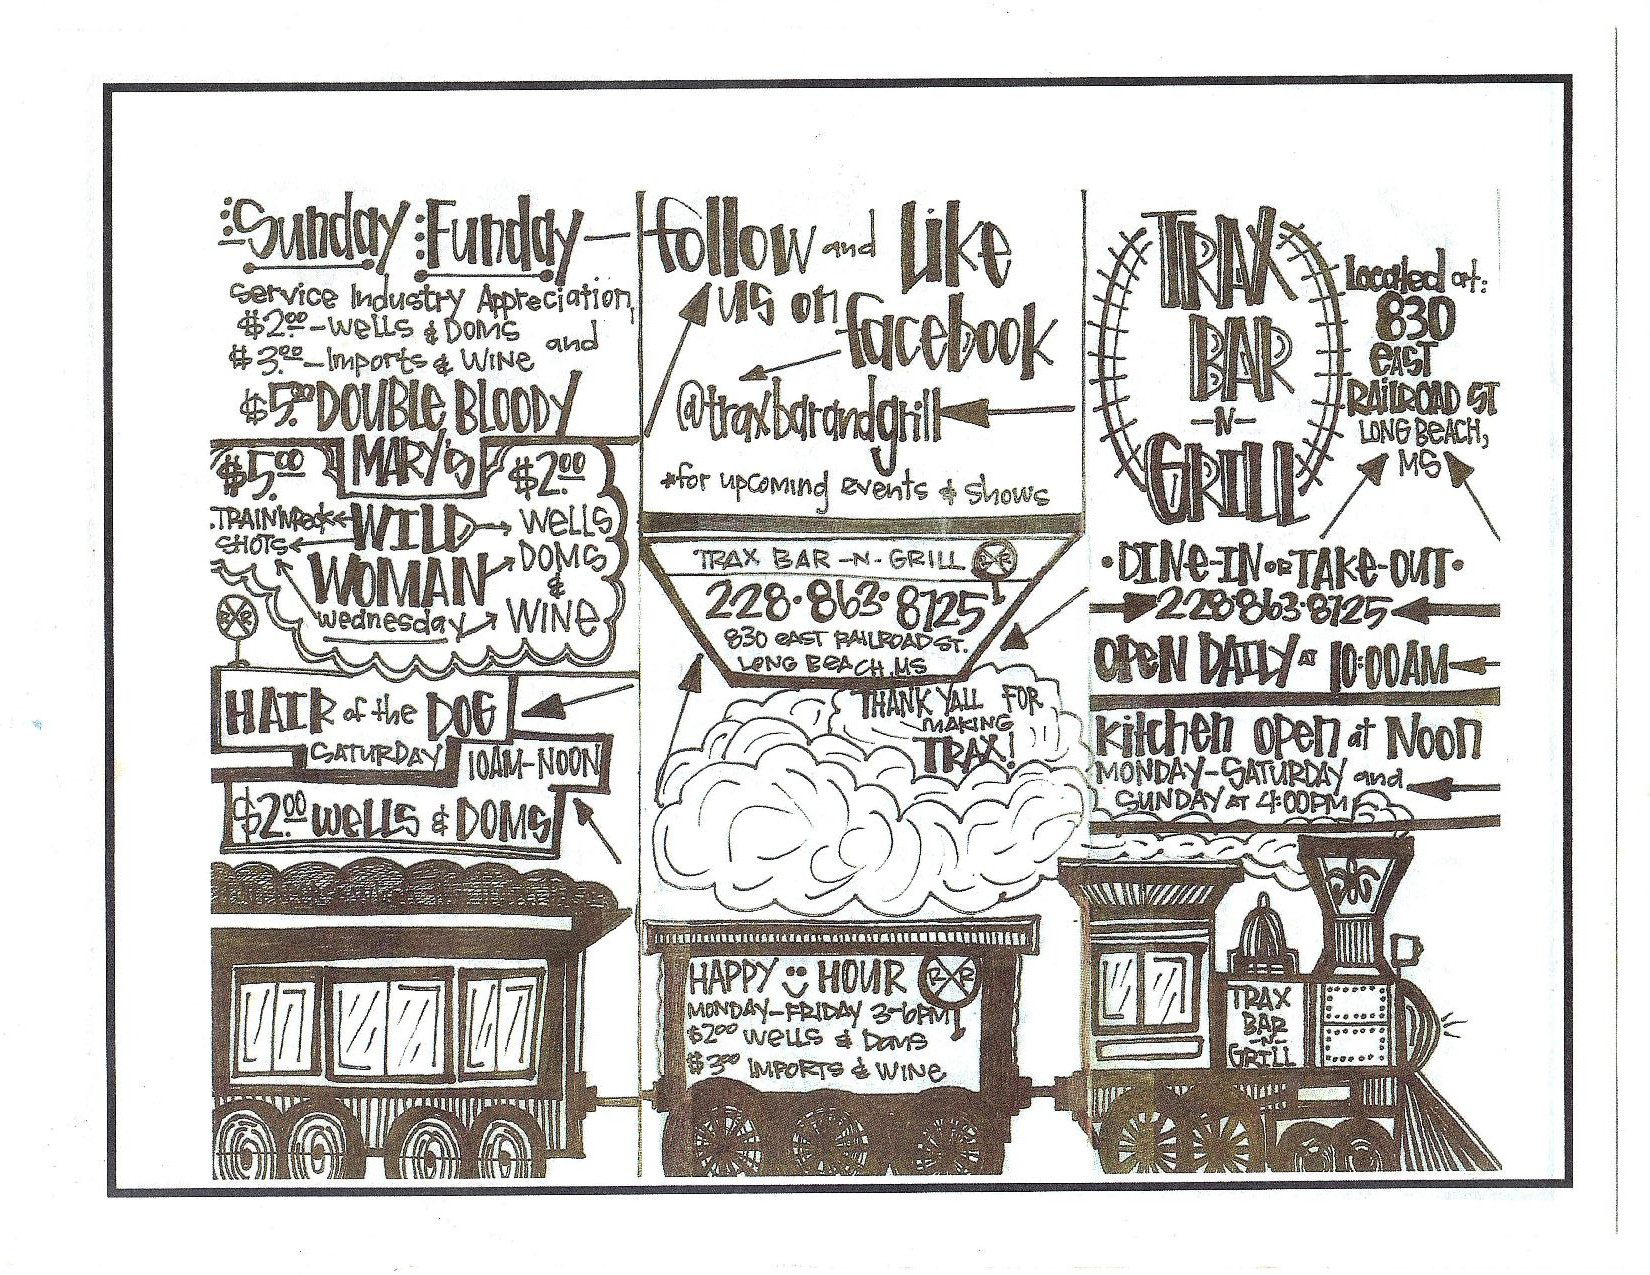 Sunday Funday
Service Industry Appreciation
$2.00-Wells & DOMS and
$3.00-Imports & WINE
$5.00 DOUBLE BLOODY
MARY'S
$5.00
SHOTS
WILD
WOMAN
Wednesday
$2.00
Wells
DOMS
&
WINE
RXR
HAIR of the DOG
SATURDAY
10AM-NOON
$2.00 Wells & DOMS
follow and Like
us on
facebook
@traxbarandgrill
*for upcoming events & shows
TRAX BAR-N-GRILL RXR
228·863·8125
830 EAST RAILROAD ST.
LONG BEACH, MS
THANK YALL FOR
MAKING
TRAX!
HAPPY HOUR RXR
MONDAY-FRIDAY 3-6PM
$2.00 Wells & Doms
$3.00 IMPORTS & WINE
TRAX
BAR
-N-
GRILL
Located at:
830
EAST
RAILROAD ST
LONG BEACH,
MS
·DINE-IN or TAKE-OUT·
228·863·8125
OPEN DAILY AT 10:00AM
Kitchen open at Noon
MONDAY-SATURDAY and
SUNDAY AT 4:00PM
TRAX
BAR
-N-
GRILL